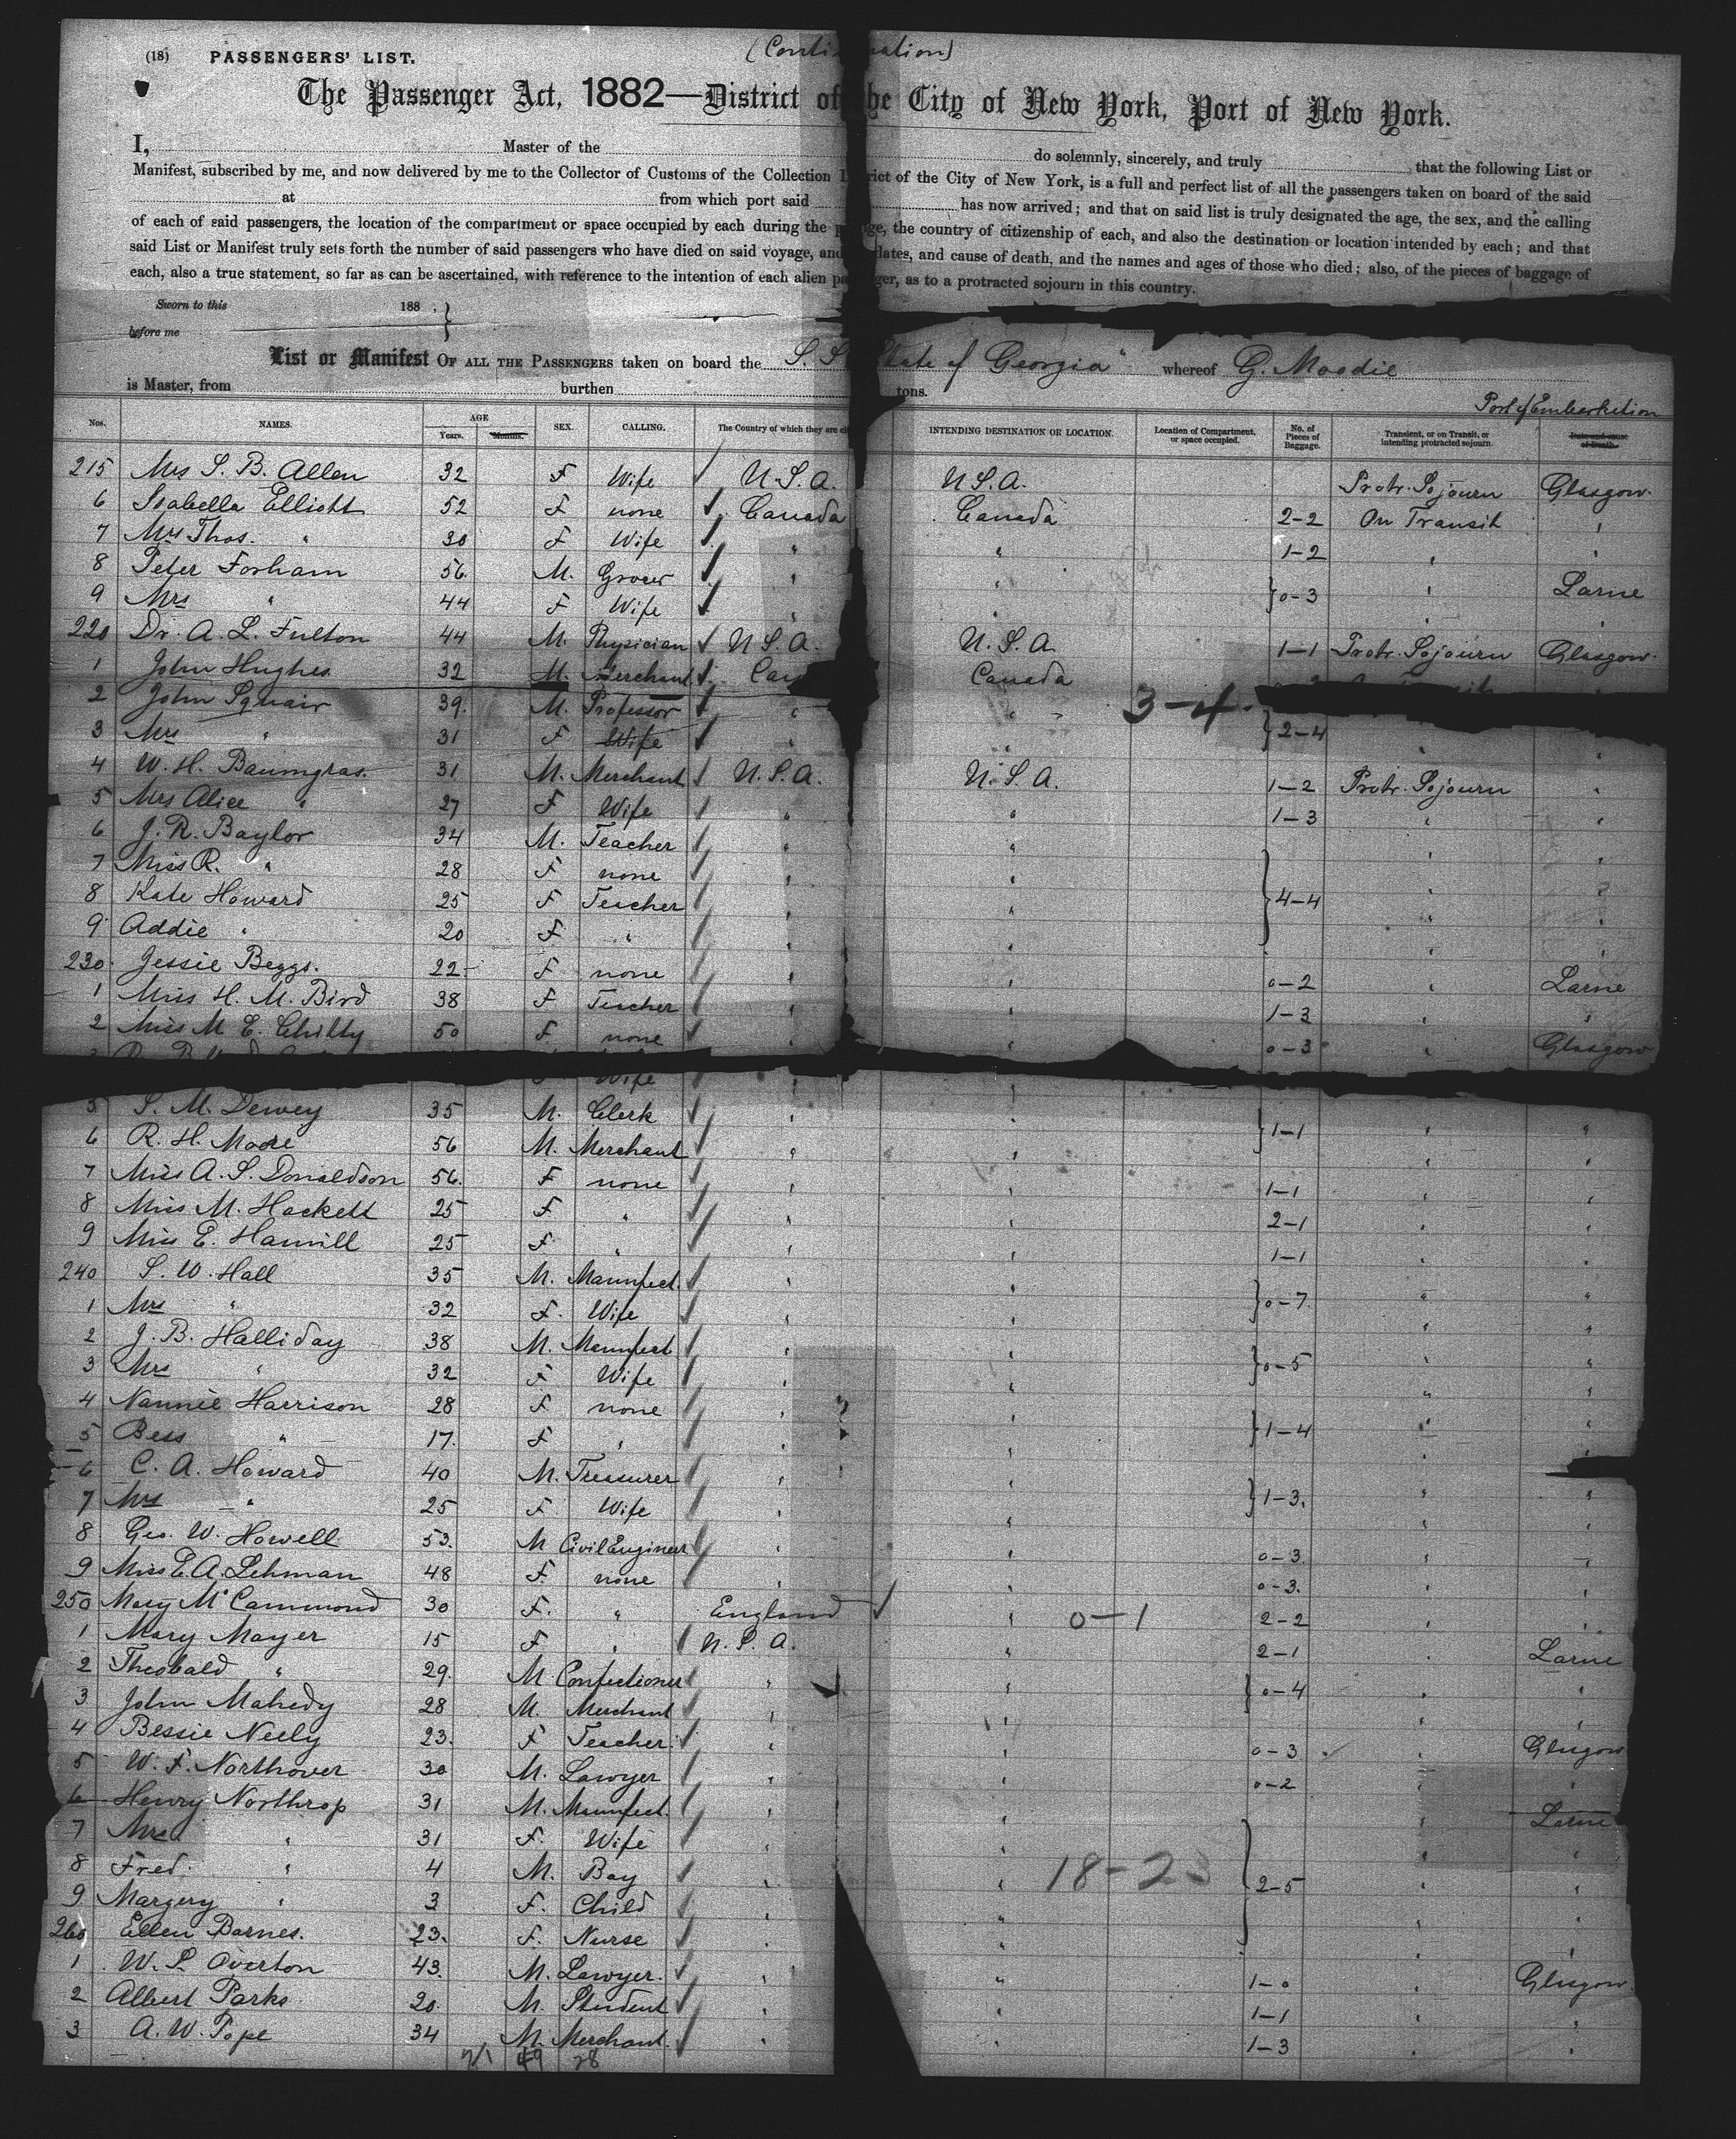 (18) PASSENGERS' LIST. (Conti nation)
The Passenger Act, 1882—District of he City of New York, Port of New York.
I, Master of the do solemnly, sincerely, and truly that the following List or
Manifest, subscribed by me, and now delivered by me to the Collector of Customs of the Collection rict of the City of New York, is a full and perfect list of all the passengers taken on board of the said
at from which port said has now arrived; and that on said list is truly designated the age, the sex, and the calling
of each of said passengers, the location of the compartment or space occupied by each during the ge, the country of citizenship of each, and also the destination or location intended by each; and that
said List or Manifest truly sets forth the number of said passengers who have died on said voyage, and dates, and cause of death, and the names and ages of those who died; also, of the pieces of baggage of
each, also a true statement, so far as can be ascertained, with reference to the intention of each alien pa ger, as to a protracted sojourn in this country.
Sworn to this 188 .
before me
List or Manifest OF ALL THE PASSENGERS taken on board the S. S. State of Georgia" whereof G. Moodie
is Master, from burthen tons.
Port of Embarkation
Nos. NAMES. AGE Years. Months. SEX. CALLING. The Country of which they are INTENDING DESTINATION OR LOCATION. Location of Compartment, or space occupied. No. of Pieces of Baggage. Transient, or on Transit, or intending protracted sojourn. Date and cause of Death.
215 Mrs S. B. Allen 32 F Wife U.S.A. U.S.A. Protr. Sojourn Glasgow
6 Isabella Elliott 52 F none Canada Canada 2-2 On Transit "
7 Mrs Thos. " 30 F Wife " " 1-2 " "
8 Peter Forham 56. M. Grocer " " 0-3 " Larne
9 Mrs " 44 F Wife " " " "
220 Dr. A. L. Fulton 44 M. Physician U.S.A. U.S.A. 1-1 Protr. Sojourn Glasgow
1 John Hughes 32 M. Merchant Can Canada
2 John Squair 39. M. Professor " " 3-4. 2-4
3 Mrs " 31 F Wife " " " "
4 W. H. Baumgras. 31 M. Merchant U.S.A. U.S.A. 1-2 Protr. Sojourn "
5 Mrs Alice " 27 F Wife " " 1-3 " "
6 J. R. Baylor 34 M. Teacher " " " "
7 Miss R. " 28 F none " " 4-4 " "
8 Kate Howard 25 F Teacher " " " "
9 Addie " 20 F " " " " "
230 Jessie Beggs. 22 F none " " 0-2 " Larne
1 Miss H. M. Bird 38 F Teacher " " 1-3 " "
2 Miss M E. Chilly 50 F none " " 0-3 " Glasgow
Wife
5 S. M. Dewey 35 M. Clerk " " 1-1 " "
6 R. H. Moore 56 M. Merchant " " " "
7 Miss A. S. Donaldson 56. F none " " 1-1 " "
8 Miss M. Hackett 25 F " " " 2-1 " "
9 Miss E. Hamill 25 F " " " 1-1 " "
240 S. W. Hall 35 M. Manufact. " " 0-7. " "
1 Mrs " 32 F. Wife " " " "
2 J. B. Halliday 38 M. Manufact " " 0-5 " "
3 Mrs " 32 F. Wife " " " "
4 Nannie Harrison 28 F none " " 1-4 " "
5 Bess " 17. F " " " " "
6 C. A. Howard 40 M. Treasurer " " 1-3. " "
7 Mrs " 25 F. Wife " " " "
8 Geo. W. Howell 53. M Civil Engineer " " 0-3. " "
9 Miss E. A. Lehman 48 F. none " " 0-3. " "
250 Mary McCammond 30 F. " England " 0-1 2-2 " "
1 Mary Mayer 15 F " U.S.A. " 2-1 " Larne
2 Theobald " 29. M Confectioner " " 0-4 " "
3 John Mahedy 28 M. Merchant " " " "
4 Bessie Neely 23. F Teacher " " 0-3 " Glasgow
5 W. F. Northover 30 M. Lawyer " " 0-2 " "
6 Henry Northrop 31 M. Manufact. " " " Larne
7 Mrs " 31 F. Wife " " " "
8 Fred. " 4 M. Boy " " 18-23 2-5 " "
9 Margery " 3 F. Child " " " "
260 Ellen Barnes. 23. F. Nurse " " " "
1 W. S. Overton 43. M. Lawyer. " " 1-0 " Glasgow.
2 Albert Parks 20. M. Student " " 1-1 " "
3 A. W. Pope 34 M. Merchant. " " 1-3 " "
71 49 28